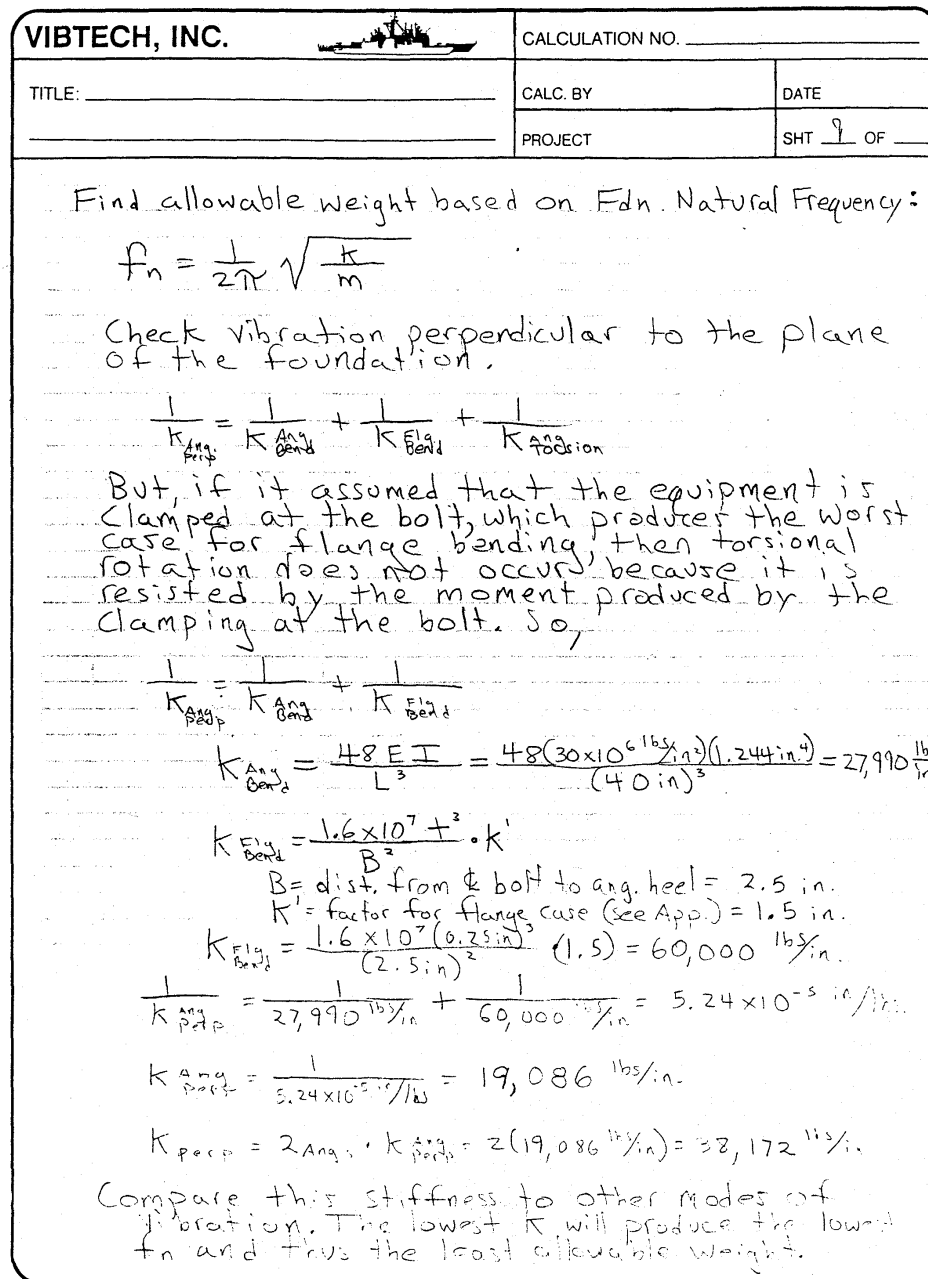 VIBTECH, INC.
CALCULATION NO.
TITLE:
CALC. BY
DATE
PROJECT
SHT 9 OF
Find allowable weight based on Fdn. Natural Frequency:
fn = 1/2π √k/m
Check vibration perpendicular to the plane
of the foundation.
1/K Ang. Perp = 1/K Ang. Bend + 1/K Flg. Bend + 1/K Ang. Torsion
But, if it assumed that the equipment is
clamped at the bolt, which produces the worst
case for flange bending, then torsional
rotation does not occurs because it is
resisted by the moment produced by the
clamping at the bolt. So,
1/K Ang. Perp = 1/K Ang. Bend + 1/K Flg. Bend
K Ang. Bend = 48EI/L³ = 48(30x10⁶ lbs/in²)(1.244in⁴)/(40in)³ = 27,990 lb/in
K Flg. Bend = 1.6x10⁷ t³/B² · k'
B = dist. from ℄ bolt to ang. heel = 2.5 in.
K' = factor for flange case (see App.) = 1.5 in.
K Flg. Bend = 1.6x10⁷(0.25in)³/(2.5in)² (1.5) = 60,000 lbs/in.
1/K Ang. Perp = 1/27,990 lbs/in + 1/60,000 lbs/in = 5.24x10⁻⁵ in/lbs.
K Ang. Perp = 1/5.24x10⁻⁵ in/lbs = 19,086 lbs/in.
K perp = 2 Angs · K Ang. Perp = 2(19,086 lbs/in) = 38,172 lbs/in
Compare this stiffness to other modes of
vibration. The lowest K will produce the lowest
fn and thus the least allowable weight.